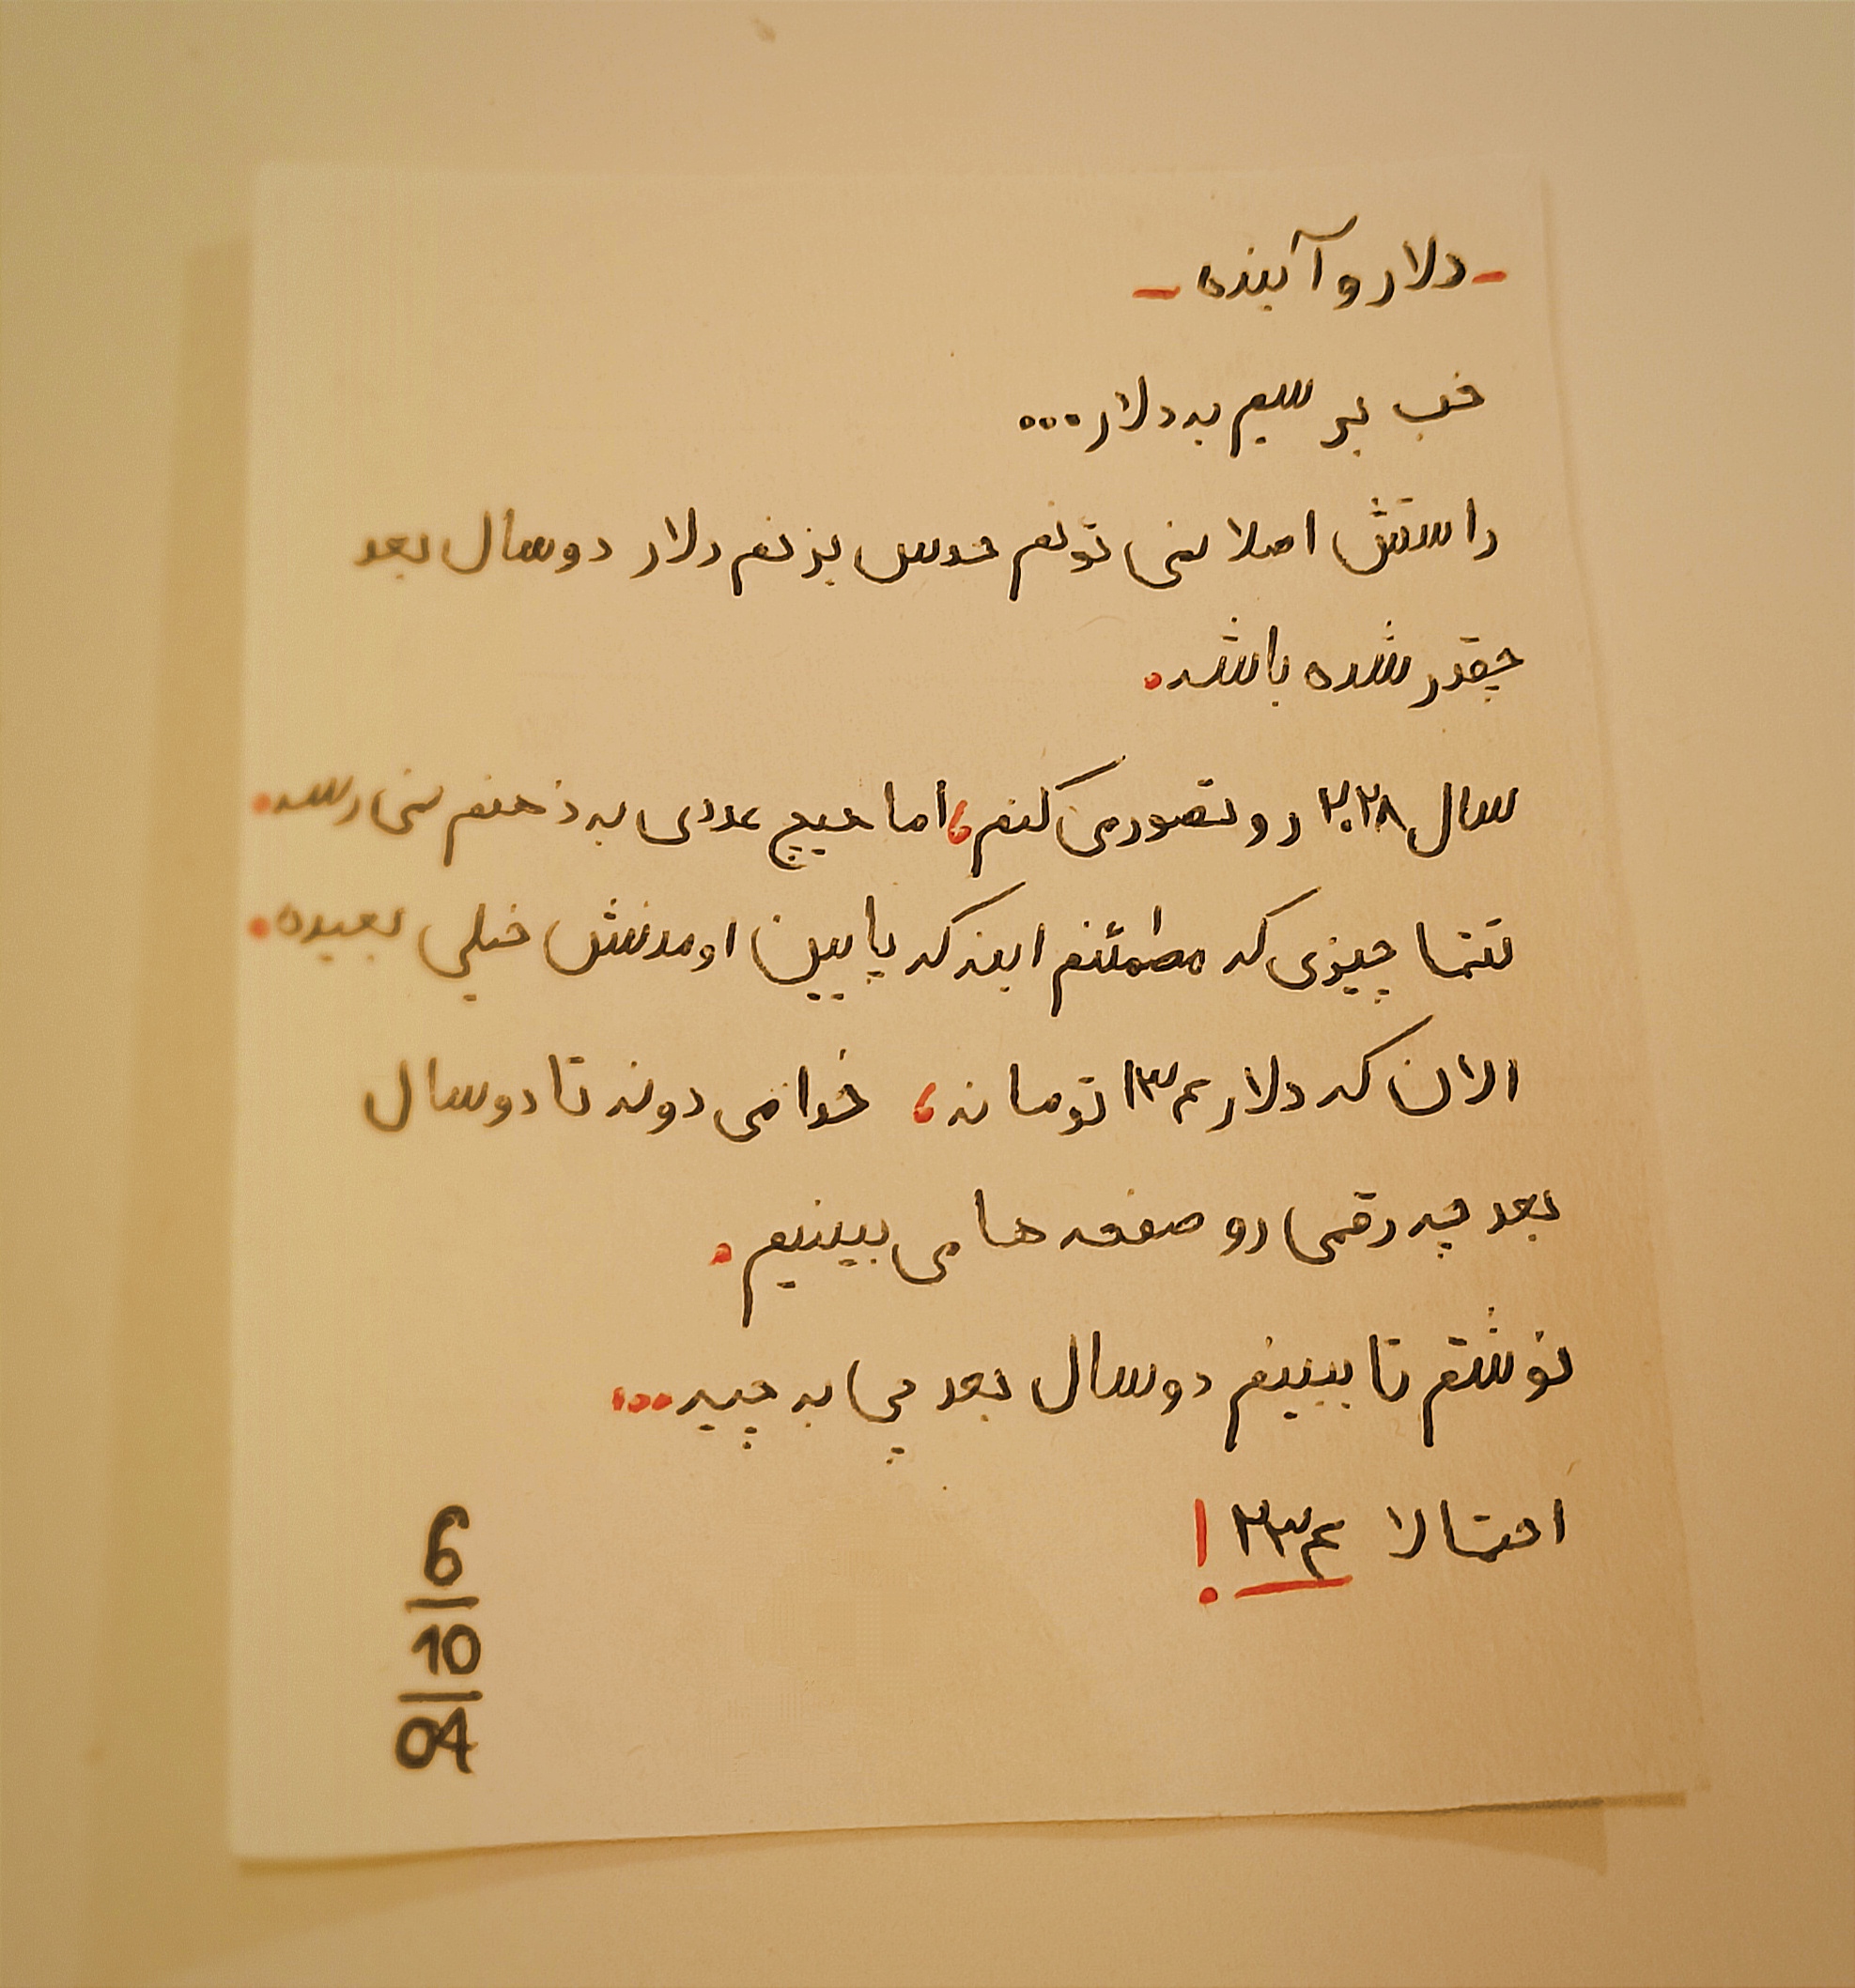 - دلار و آینده -
خب برسیم به دلار...
راستش اصلا نمی تونم حدس بزنم دلار دو سال بعد
چقدر شده باشد.
سال ۲۰۲۸ رو تصور می کنم، اما هیچ عددی به ذهنم نمی رسد.
تنها چیزی که مطمئنم اینه که پایین اومدنش خیلی بعیده.
الان که دلار ۱۳۴ تومانه، خدا می دونه تا دو سال
بعد چه رقمی رو صفحه ها می بینیم.
نوشتم تا ببینم دو سال بعد چی به چیه...
احتمالا ۲۳۴!
6/10/04